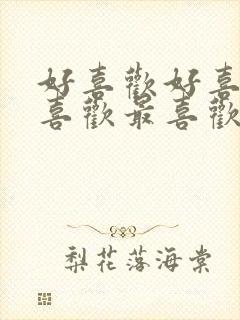 好喜歡好喜
喜歡最喜歡
梨花落海棠